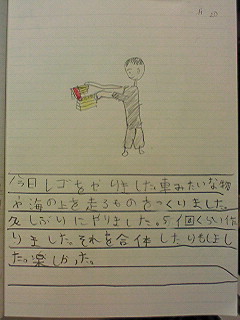 11 20
今日レゴをやりました。車みたいな物
や海の上を走るものをつくりました。
久しぶりにやりました。5個くらい作
りました。それを合体したりもしまし
た。楽しかった。